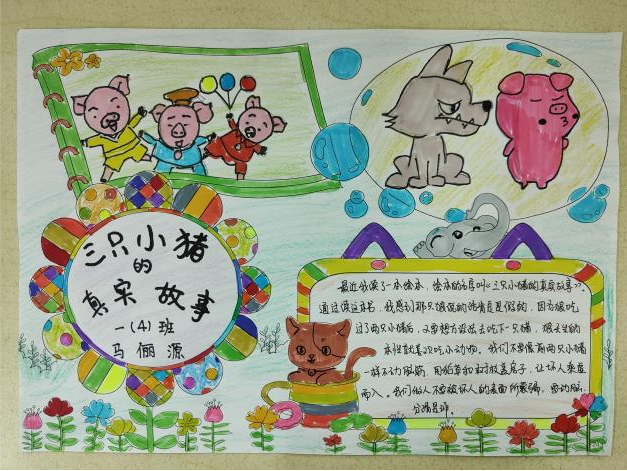 三只小猪
的
真实 故事
一(4)班
马俪源
最近我读了一本绘本，绘本的名字叫《三只小猪的真实故事》
通过读这本书，我感到那只狼说的话肯定是假的，因为狼吃
过了两只小猪后，又要想方设法去吃下一只猪，狼天生的
本性就是吃小动物。我们不要像前两只小猪
一样不动脑筋，用稻草和树枝盖房子，让坏人乘虚
而入。我们做人不要被坏人的表面所蒙骗，要动脑，
分清是非。